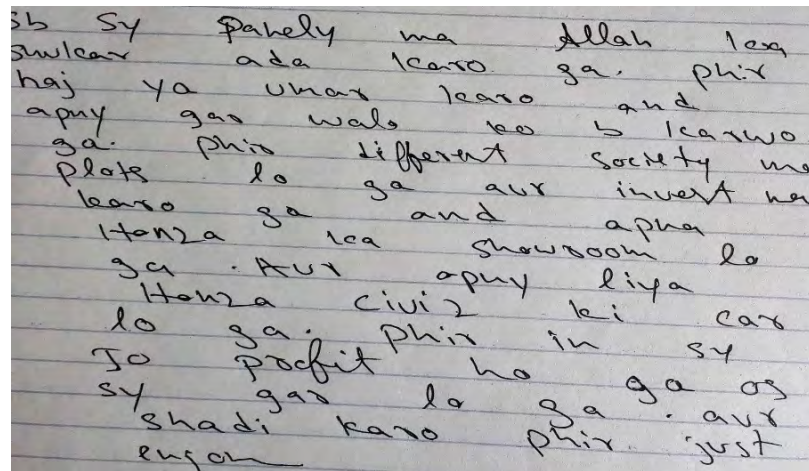 sb sy pahely ma Allah ka
shukar ada karo ga. phir
haj ya umar karo and
apny gar walo ko b karwo
ga. phir different society ma
plots lo ga aur invest ma
karo ga and apna
Honza ka showroom lo
ga. Aur apny liya
Honza civiz ki car
lo ga. phir in sy
Jo profit ho ga os
sy gar lo ga. aur
shadi karo phir just
enjon